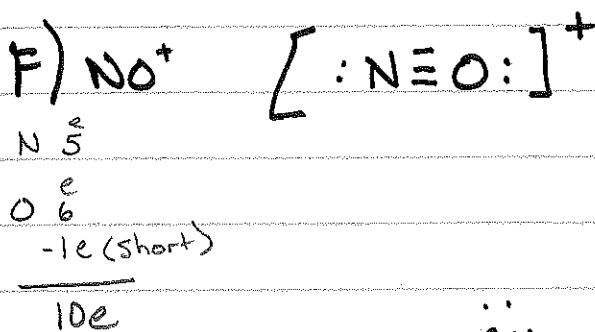 F) NO⁺ [ :N≡O: ]⁺
N 5 e
O 6 e
-1e (short)
10e